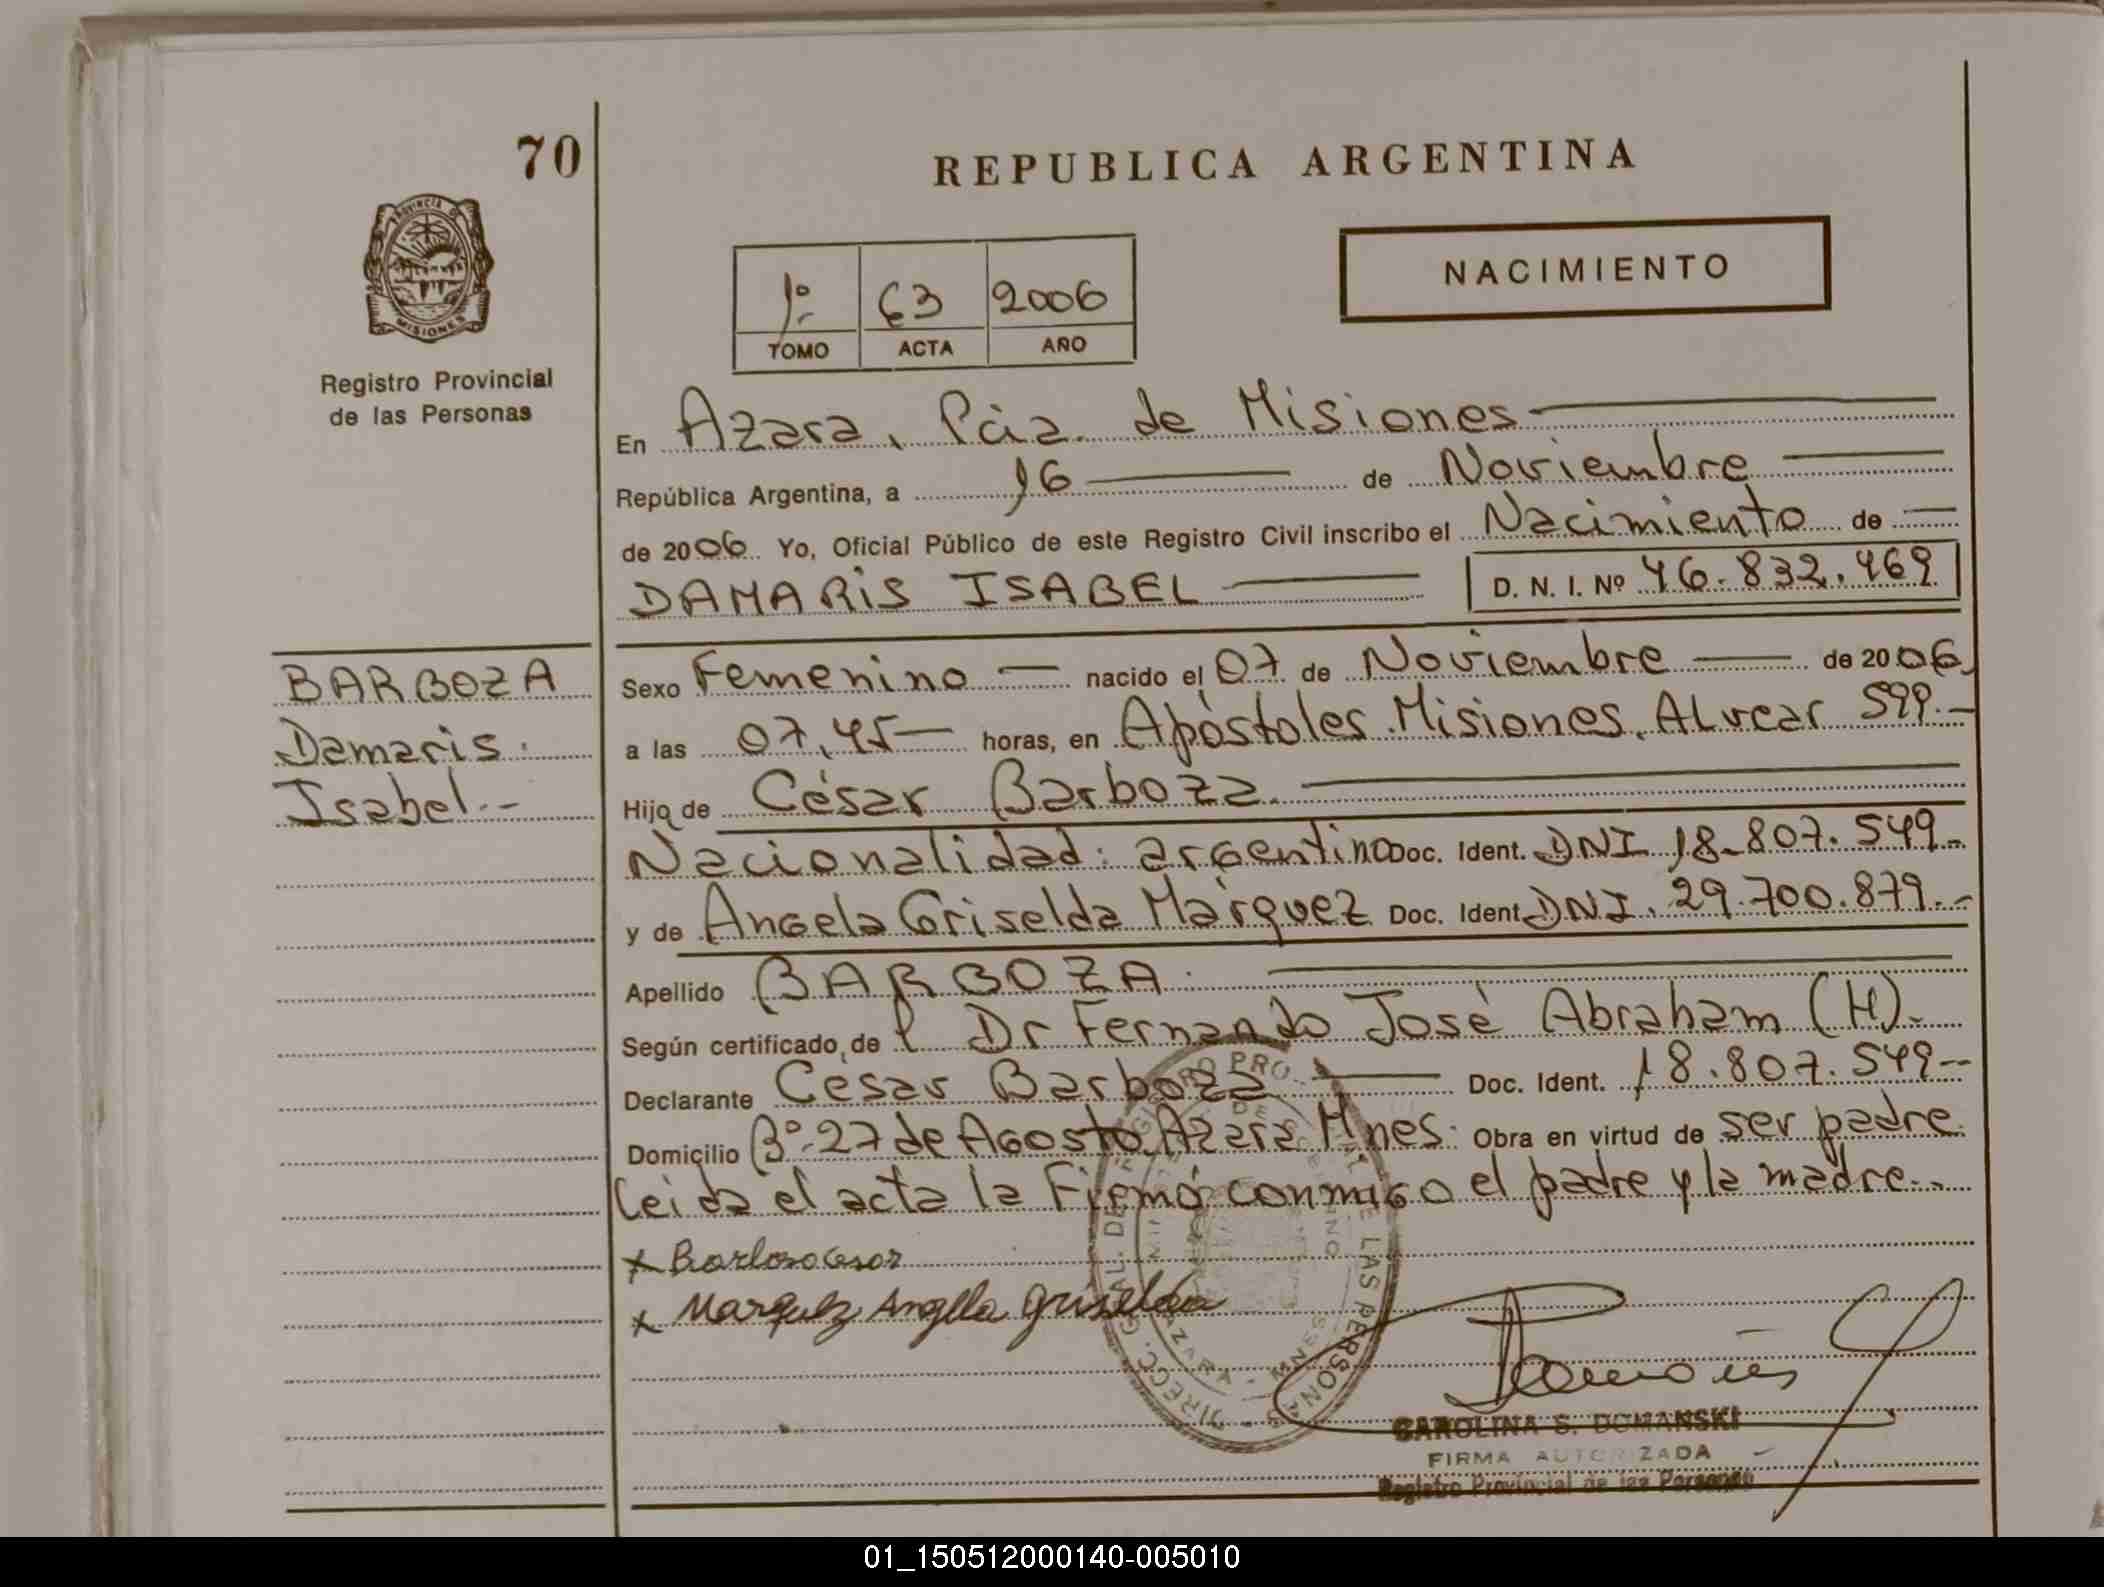 70
REPUBLICA ARGENTINA
PROVINCIA DE
MISIONES
Registro Provincial
de las Personas
1º 63 2006
TOMO ACTA AÑO
NACIMIENTO
En Azara, Pcia. de Misiones
República Argentina, a 16 de Noviembre
de 2006. Yo, Oficial Público de este Registro Civil inscribo el Nacimiento de
DAMARIS ISABEL D. N. I. Nº 46.832.469
BARBOZA
Damaris
Isabel.-
Sexo Femenino nacido el 07 de Noviembre de 2006,
a las 07,45 horas, en Apóstoles. Misiones, Alvear 599.-
Hija de César Barboza.
Nacionalidad: argentino Doc. Ident. DNI 18.807.549.-
y de Angela Griselda Márquez Doc. Ident. DNI. 29.700.879.-
Apellido BARBOZA.
Según certificado de l Dr Fernando José Abraham (H).
Declarante César Barboza Doc. Ident. 18.807.549--
Domicilio Bº 27 de Agosto Azara Mnes. Obra en virtud de ser padre.
Leida el acta la Firmó conmigo el padre y la madre..
x Barboza Cesar
x Marquez Angela Griselda
DIRECC. GRAL. DEL REGISTRO PROVINCIAL DE LAS PERSONAS
AZARA - MNES
CAROLINA S. DOMANSKI
FIRMA AUTORIZADA
Registro Provincial de las Personas
01_150512000140-005010